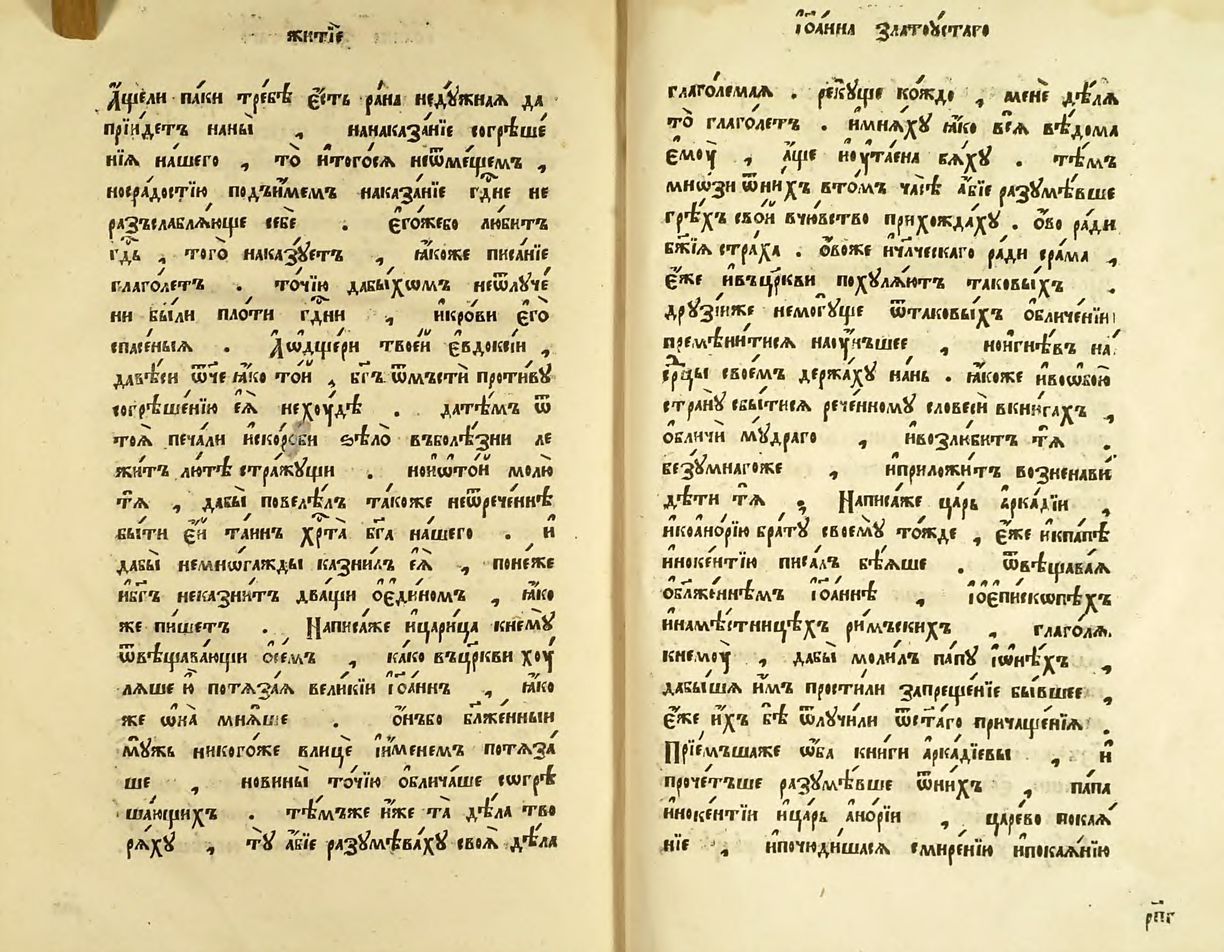 житїѐ
А҆́щели па́ки тре́бѣ є҆́сть ра́на неду́жнаѧ да
прїи́детъ наны̀ , нанаказа́нїе согрѣше́
нїѧ на́шего , то̀ и҆того́сѧ неѿме́щемъ ,
носра́достїю подъи́мемъ наказа́нїе гд҇не не
разъслаблѧ́юще себѐ . є҆го́жебо лю́битъ
гд҇ь , того̀ наказу́етъ , ꙗ҆́коже писа́нїе
глаго́летъ . то́чїю дабы́хѡмъ неѿлуче
ни бы́ли пло́ти гд҇ни , и҆кро́ви є҆го̀
спасе́ныѧ . А҆ѡ҆дще́ри твое́й є҆ѵдоксі́и ,
да́вѣси ѿ́че ꙗ҆́ко то́й , бг҃ъ ѿмъстѝ проти́ву
согрѣше́нїю є҆ѧ̀ нехоу́дѣ . дати́мъ ѿ
тоѧ̀ печа́ли и҆ско́рби ѕѣло̀ въболѣ́зни ле
жи́тъ лю́тѣ стра́жущи . нои҆ѡ҆то́й молю̀
тѧ̀ , дабы̀ повелѣ́лъ та́коже неѿрече́ннѣ
бы́ти є҆́й та́инъ хрт҇а̀ бг҃а на́шего . и҆
дабы̀ немнѡга́жды казни́лъ є҆ѧ̀ , поне́же
и҆бг҃ъ неказни́тъ два́щи ѡ҆є҆ди́номъ , ꙗ҆́ко
же пи́шетъ . Написа́же и҆цари́ца кнему̀
ѿвѣщава́ющи ѻ҆се́мъ , ка́ко въцр҃кви хоу́
лѧше ю҆̀ потѧза́ѧ вели́кїи і҆ѻа́ннъ , ꙗ҆́ко
же ѻ҆на̀ мнѧ́ше . ѻ҆́нъбо бл҃же́нныи
му́жъ никого́же влицѐ и҆и҆́менемъ потѧза́
ше , новины̀ то́чїю ѻ҆блича́ше сѡгрѣ
ша́ющихъ . тѣ́мъже и҆́же та̀ дѣ́ла тво
рѧ́ху , ту̀ а҆́бїе разумѣва́ху своѧ̀ дѣ́ла
і҆ѻа́нна златоу́стаго
глаго́лемаѧ . реку́ще ко́ждо , менѐ дѣ́лѧ
то̀ глаго́летъ . и҆мнѧ́ху ꙗ҆́ко всѧ̀ вѣ́дома
є҆моу̀ , а҆́ще и҆оу҆тае́на бѧ́ху . тѣ́мъ
мно́зи ѿни́хъ вто́мъ часѣ̀ а҆́бїе разумѣ́вше
грѣ́хъ сво́й вчю́вство прихожда́ху . ѻ҆́во ра́ди
бж҃їѧ стра́ха . ѻ҆́воже и҆чл҃ческаго ра́ди сра́ма ,
є҆́же и҆въцр҃кви похулѧ́ютъ таковы́хъ .
друзі́иже немогу́ще ѿтаковы́хъ ѻ҆бличе́нїи
премѣни́тисѧ наоу́ньшее , нои҆гнѣ́въ на́
ср҃цы свое́мъ держа́ху на́нь . ꙗ҆́коже и҆воѡбою̀
страну̀ сбы́тисѧ рече́нному словесѝ вкни́гахъ ,
ѻ҆бличѝ му́драго , и҆возлю́битъ тѧ̀ .
безу́мнагоже , и҆приложи́тъ возненави́
дѣти тѧ̀ , Написа́же ца́рь а҆рка́дїи ,
и҆коано́рїю бра́ту своему̀ то́жде , є҆́же и҆кпа́пѣ
и҆ноке́нтїю писа́лъ бѣ́ѧше . ѿвѣщава́ѧ
ѻ҆бл҃же́ннѣмъ і҆ѻа́ннѣ , і҆ѻ҆є҆пи́скѡпѣхъ
и҆намѣ́стницѣхъ ри́мъскихъ , глаго́лѧ
кнемоу̀ , дабы̀ моли́лъ па́пу і҆ѡ҆ни́хъ ,
дабы́шѧ и҆́мъ прости́ли запреще́нїе бы́вшее ,
є҆́же и҆́хъ бѣ̀ ѿлучи́ли ѿст҃а́го причаще́нїѧ .
Прїе́мъшаже ѻ҆́ба кни́ги а҆рка́дїевы , и҆
проче́тъше разумѣ́вше ѿни́хъ , па́па
и҆ноке́нтїи и҆ца́рь а҆но́рїи , царе́во покаѧ́
нїе , и҆почюди́шасѧ смире́нїю и҆покаѧ́нїю
рп҃г